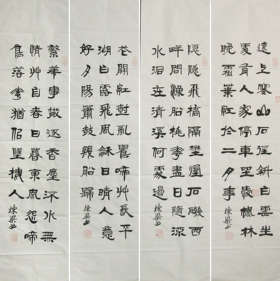 遠上寒山石徑斜白雲生
處有人家停車坐愛楓林
晚霜葉紅於二月花
隱隱飛橋隔野煙石磯西
畔問漁船桃花盡日隨流
水洞在清溪何處邊
花開紅樹亂鶯啼草長平
湖白鷺飛風和日晴人意
好夕陽簫鼓幾船歸
繁華事散逐香塵流水無
情草自春日暮東風怨啼
鳥落花猶似墜樓人